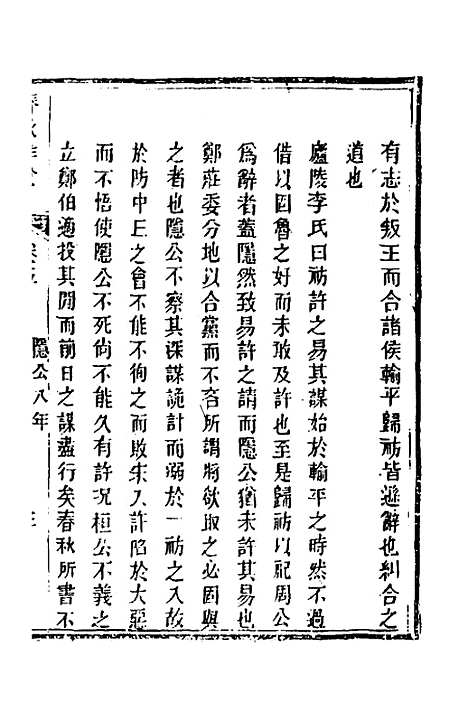 有志於叛王而合諸侯輸平歸祊皆遜辭也糾合之
道也
廬陵李氏曰祊許之易其謀始於輸平之時然不過
借以固魯之好而未敢及許也至是歸祊以祀周公
爲辭者蓋隱然致易許之請而隱公猶未許其易也
鄭莊委分地以合黨而不吝所謂將欲取之必固與
之者也隱公不察其深謀詭計而溺於一祊之入故
於防中丘之會不能不徇之而敗宋入許陷於大惡
而不悟使隱公不死尙不能久有許况桓公不義之
立鄭伯適投其閒而前日之謀盡行矣春秋所書不
隱公八年